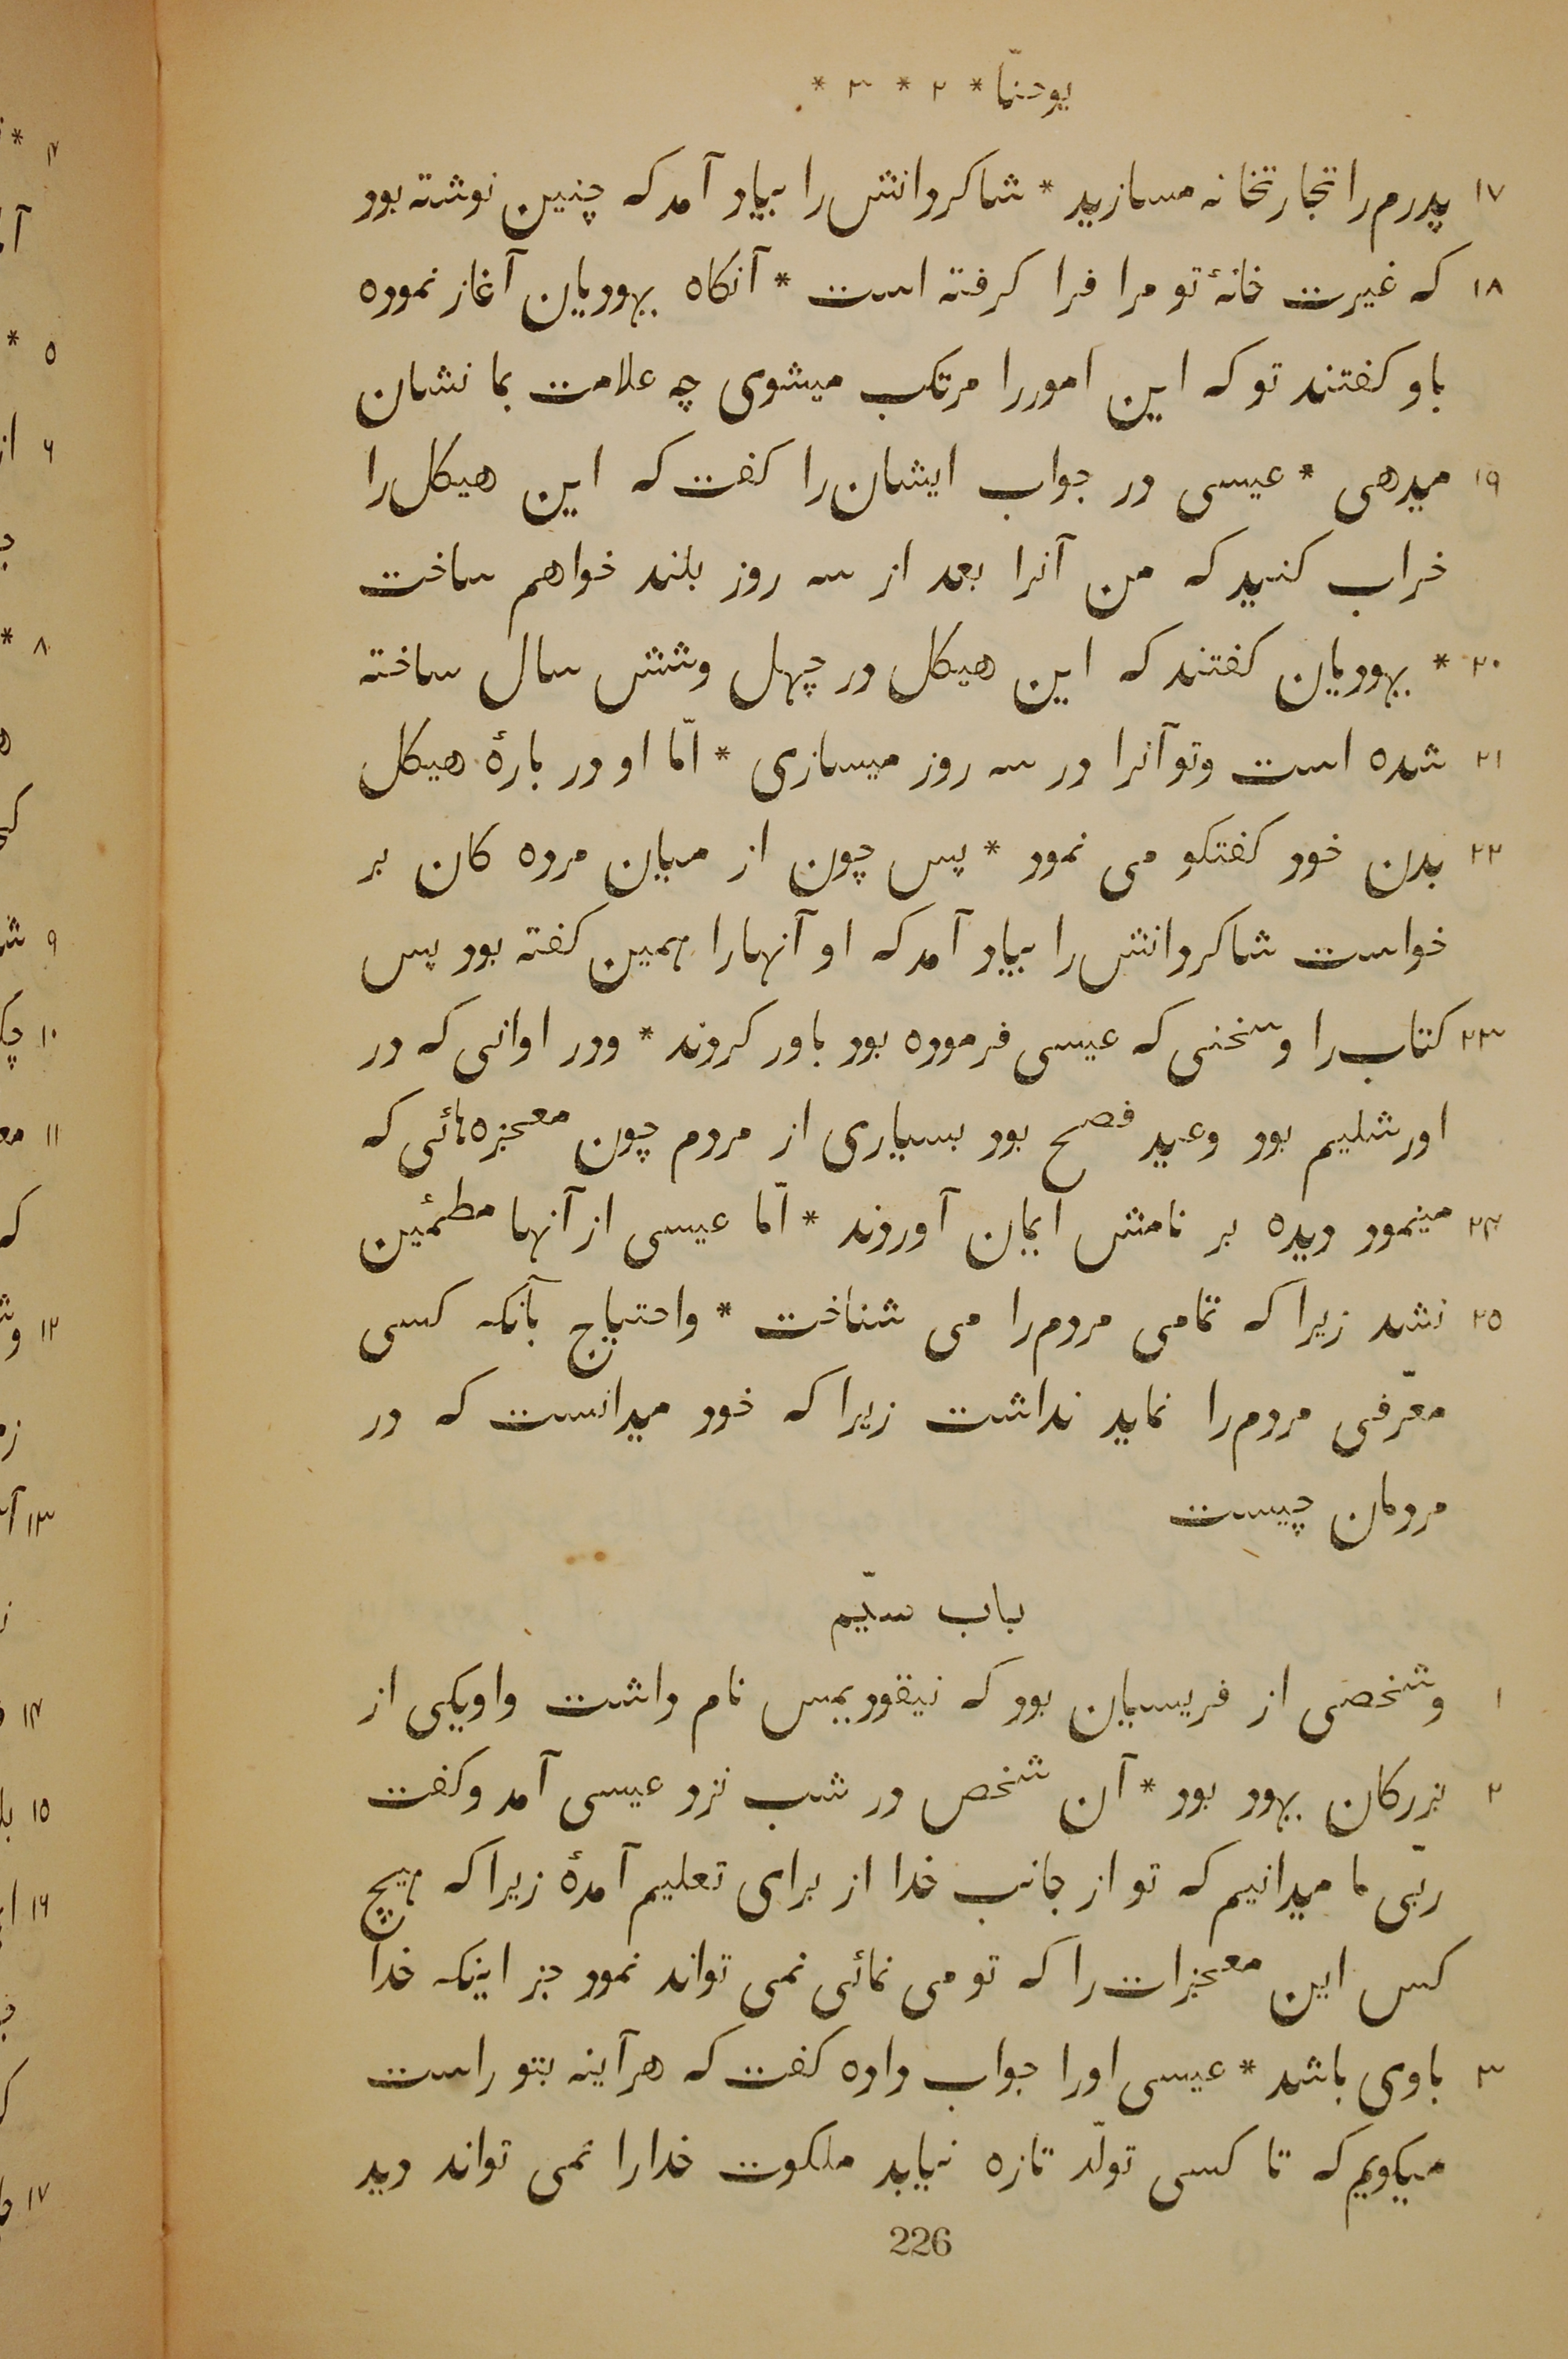 یوحنّا * ۲ * ۳ *
۱۷ پدرم را تجارتخانه مسازید * شاکردانش را بیاد آمد که چنین نوشته بود
۱۸ که غیرت خانهٔ تو مرا فرا کرفته است * آنکاه یهودیان آغاز نموده
باو کفتند تو که این امور را مرتکب میشوی چه علامت بما نشان
۱۹ میدهی * عیسی در جواب ایشان را کفت که این هیکل را
خراب کنید که من آنرا بعد از سه روز بلند خواهم ساخت
۲۰ * یهودیان کفتند که این هیکل در چهل وشش سال ساخته
۲۱ شده است وتو آنرا در سه روز میسازی * امّا او در بارهٔ هیکل
۲۲ بدن خود کفتکو می نمود * پس چون از میان مرده کان بر
خواست شاکردانش را بیاد آمد که او آنها را همین کفته بود پس
۲۳ کتاب را وسخنی که عیسی فرموده بود باور کردند * ودر اوانی که در
اورشلیم بود وعید فصح بود بسیاری از مردم چون معجزه‌هائی که
۲۴ مینمود دیده بر نامش ایمان آوردند * امّا عیسی از آنها مطمئین
۲۵ نشد زیرا که تمامی مردم را می شناخت * واحتیاج بآنکه کسی
معرّفی مردم را نماید نداشت زیرا که خود میدانست که در
مردمان چیست
باب سیّم
۱ وشخصی از فریسیان بود که نیقودیمس نام داشت واویکی از
۲ بزرکان یهود بود * آن شخص در شب نزد عیسی آمد وکفت
ربّی ما میدانیم که تو از جانب خدا از برای تعلیم آمدهٔ زیرا که هیچ
کس این معجزات را که تو می نمائی نمی تواند نمود جز اینکه خدا
۳ باوی باشد * عیسی اورا جواب داده کفت که هرآینه بتو راست
میکویم که تا کسی تولّد تازه نیابد ملکوت خدارا نمی تواند دید
226